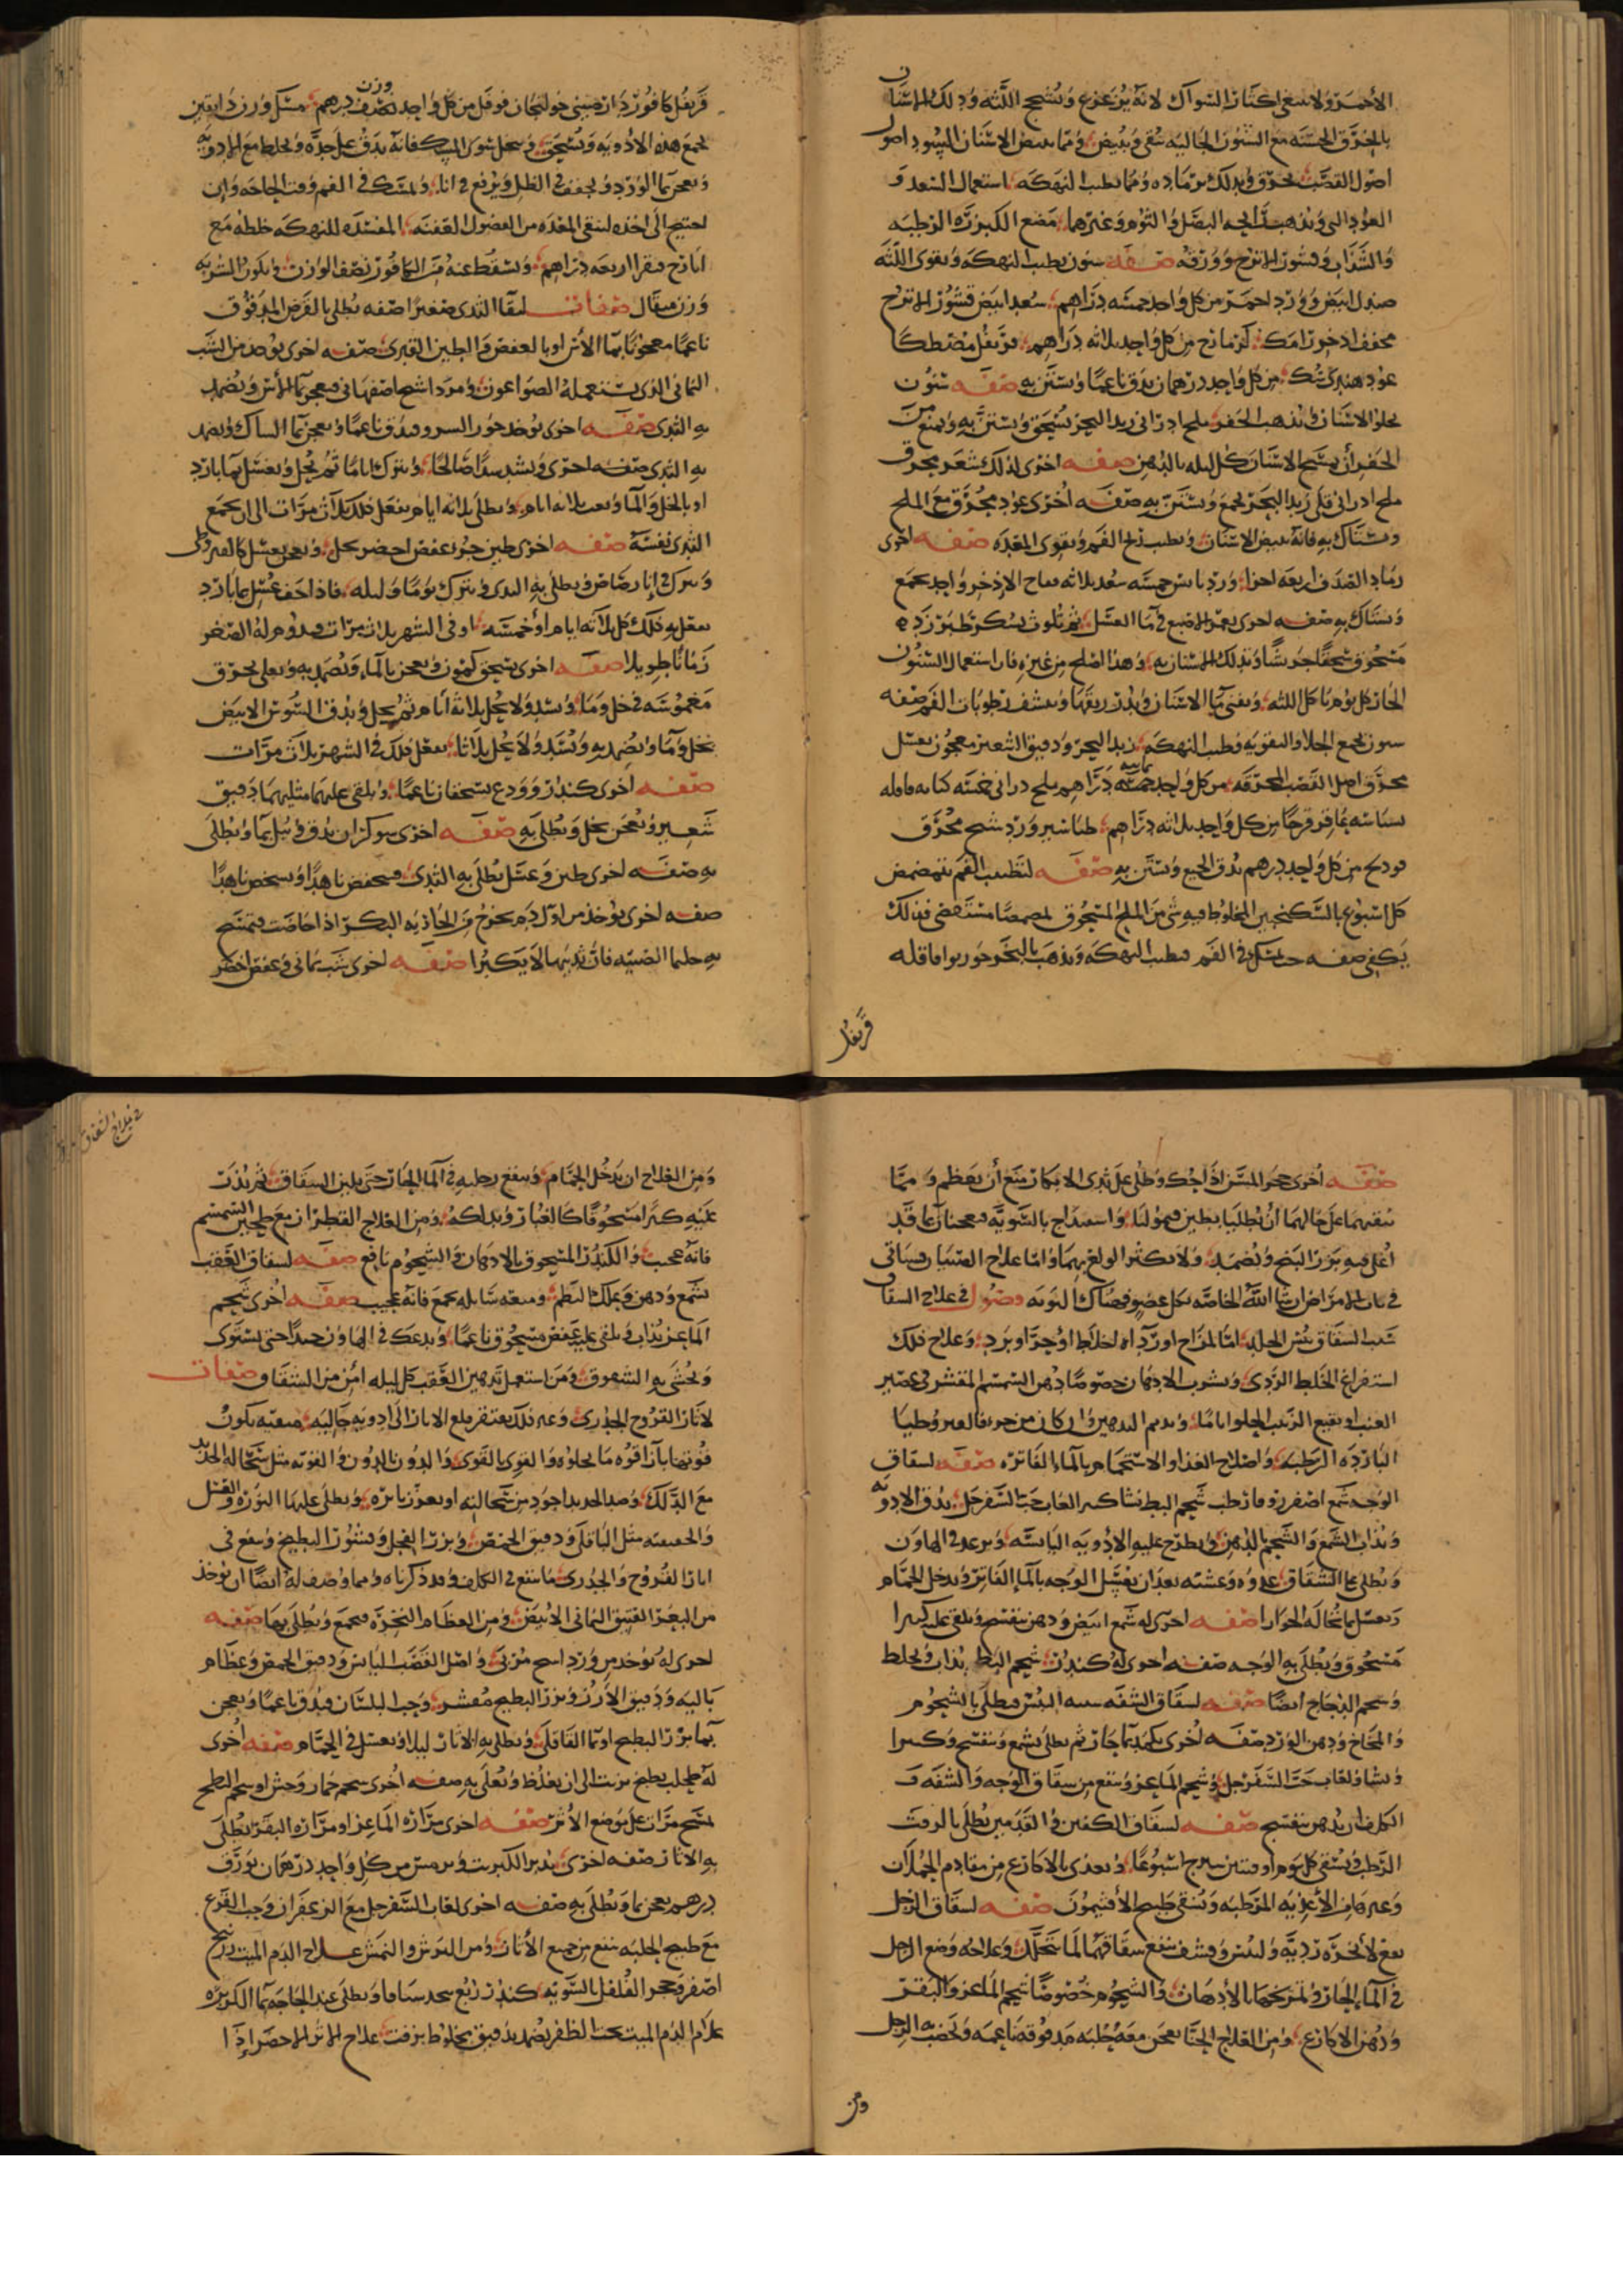 الأحمر ولا ينبغي اكثار السواك لانه يزعزع ويشحج اللثه ودلك الاسنان
بالخرق الخشنه مع السنون الجاليه ينقي ويبيض ومما يبيض الاسنان السود اصول
اصول القصب يحرق ويدلك برماده ومما يطيب النهكه استعمال السعد و
العود الني ويذهب رائحه البصل والثوم وغيرهما مضغ الكبزره الرطبه
والسذاب وقشور الاترج وورقه صفه سنون يطيب النهكه ويقوي اللثه
صندل ابيض وورد احمر من كل واحد خمسه دراهم سعد ابيض قشور الاترج
مجفف اذخر رامك كزمازج من كل واحد ثلاثه دراهم قرنفل مصطكا
عود هندي سك من كل واحد درهمان يدق ناعما ويستن به صفه سنون
يجلو الاسنان ويذهب الحفر ملح ادراني زبد البحر يسحق ويستن به ويمنع من
الحفر أن يمسح الاسنان كل ليله بالدهن صفه اخرى لذلك شعير محرق
ملح ادراني قلي زبد البحر يجمع ويستن به صفه أخرى عود محرق مع الملح
ويستاك به فانه يبيض الاسنان ويطيب ريح الفم ويقوي المعده صفه اخرى
رماد الصدف اربعه اجزا ورد يابس خمسه سعد ثلاثه فقاح الاذخر واحد يجمع
ويستاك به صفه اخرى يغمر الاصبع في ما العسل ثم يلوث بسكر طبرزد
مسحوق سحقا جريشا ويدلك الاسنان به وهذا اصلح من غيره فان استعمال السنون
الحار كل يوم ياكل اللثه ويفني ما الاسنان ويدر ريقها وينشف رطوبات الفم صفه
سنون يجمع الجلا والتقويه وطيب النهكه زبد البحر ودقيق الشعير معجون بعسل
محرق اصل القصب المحرقه من كل واحد خمسه دراهم ملح دراني خمسه كبابه قاقله
بسباسه عاقرقرحا من كل واحد ثلاثه دراهم طباشير ورد شيح محرق
فوذنج من كل واحد درهم يدق الجميع ويستن به صفه لتطييب الفم يتمضمض
كل اسبوع بالسكنجبين المخلوط فيه شي من الملح المسحوق تمضمضا مستقصى فذلك
يكفي صفه حب يمسك في الفم فيطيب النهكه ويذهب بالبخر جوزبوا قاقله
قرنفل
قرنفل كافور دارصيني خولنجان فوفل من كل واحد نصف وزن درهم مسك وزن دانقين
يجمع هذه الادويه ويسحق وينخل سوى المسك فانه يدق على حده ويخلط مع الادويه
ويعجن بما الورد ويجفف في الظل ويرفع في انا ويمسك في الفم وقت الحاجه وان
احتيج الى اخذه لينقي المعده من الفضول العفنه المفسده للنهكه خلطه مع
ايارج فيقرا اربعه دراهم ويسقط عنه من الكافور نصف الوزن ويكون الشربه
وزن مثقال صفات لبقاا الثدي صغيرا صفه يطلى بالقرض المدقوق
ناعما معجونا بما الأس او بالعفص والطين القبرسي صفه اخرى يوخذ من الشب
اليماني الذي يستعمله الصواغون ومرداسنج اصفهاني فيعجن بما الأس ويضمد
به الثدي صفه اخرى يوخذ جوز السرو فيدق ناعما ويعجن بما السماق ويضمد
به الثدي صفه اخرى ويشد شدا صالحا ويترك اياما ثم يحل ويغسل بما بارد
او بالخل والما ويعيد ثلاثه ايام ويطلى ثلاثه ايام يفعل ذلك ثلاث مرات الى ان يجمع
الثدي نفسه صفه اخرى طين حر وعفص اخضر بخل ويعجن بعسل كالقيروطي
ويترك في انا رصاص ويطلى به الثدي ويترك يوما وليله فاذا جف غسل بما بارد
يفعل به ذلك كل ثلاثه ايام أو خمسه او في الشهر ثلاث مرات فيدوم له الصغر
زمانا طويلا صفه اخرى يسحق كمون ويعجن بالما ويضمد به ويعلى بخرق
مغموسه في خل وما ويشد ولا يحل ثلاثه أيام ثم يحل ويدق السوسن الابيض
بخل وما ويضمد به ويشد ولا يحل ثلاثا يفعل ذلك في الشهر ثلاث مرات
صفه اخرى كندر وودع يسحقان ناعما ويلقى عليهما مثليهما دقيق
شعير ويعجن بخل ويطلى به صفه اخرى شوكران يدق ويبل بما ويطلى
به صفه اخرى طين وعسل يطلى به الثدي فيحفض ناهدا ويشخص ناهدا
صفه اخرى يؤخذ من اول دم يخرج من الجاريه البكر اذا حاضت فيمسح
به حلمتا الصبيه فان ثدييها لا يكبرا صفه اخرى شب يماني وعفص اخضر
صفه أخرى حجر المسن اذا حك وطلي على ثدي الابكار منع أن يعظم ومما
يبقيهما على حالهما أن يطليا بطين قيموليا واسفيداج بالسويه معجنان بما قد
أغلي فيه بزر البنج ويضمد ولا يكثر الولغ بهما واما علاج الفتيان فسياتي
في باب الامراض ان شا الله الخاصه بكل عضو فصاك النوبه فصول في علاج الشقاق
سبب الشقاق يبس الجلد اما لمزاج او رداه اخلاط او حر او برد وعلاج ذلك
استفراغ الخلط الردي وشرب الادهان خصوصا دهن السمسم المقشر في عصير
العنب او نقيع الزبيب الحلو اياما ويديم التدهين وان كان من حر فالقيروطيا
البارده الرطبه واصلاح الغذا والاستحمام بالما الفاتره صفه لشقاق
الوجه شمع اصفر زوفا رطب شحم البط نشا كثيرا لعاب حب السفرجل يدق الادويه
ويذاب الشمع والشحم بالدهن ويطرح عليه الأدويه اليابسه ويدعك في الهاون
ويطلى بها الشقاق غدوه وعشيه بعد ان يغسل الوجه بالما الفاتر ويدخل الحمام
ويغسل بما نخاله الحوارا صفه اخرى له شمع ابيض ودهن بنفسج ويلقى عليه كثيرا
مسحوق ويطلى به الوجه صفه اخرى له كندر شحم البط يذاب ويخلط
وشحم الدجاج ايضا صفه لشقاق الشفه سببه اليبس فيطلى بالشحوم
والمخاخ ودهن الورد صفه أخرى يكمد بما حار ثم يطلى بشمع وبنفسج وكثيرا
ونشا ولعاب حب السفرجل وشحم الماعز وينفع من شقاق الوجه والشفه و
الكلف ان يدهن ببنفسج صفه لشقاق الكفين والقدمين يطلى بالزفت
الرطب ويسقى كل يوم اوقيتين شيرج اسبوعا ويغذى بالاكارع من مقادم الحملان
وغيرها من الأغذيه المرطبه ويسقى طبيخ الأفتيمون صفه لشقاق الرجل
يقع لأبخره رديه وليبس وقشف ينفع شقاقهما لما تتحلل وعلاجه وضع الرجل
في الما الحار وتمريخها بالأدهان والشحوم خصوصا شحم الماعز والبقر
ودهن الاكارع ومن العلاج الحنا يعجن معه حلبه مدقوقه ناعمه ويخضب به الرجل
ومن
في علاج الشقاق
ومن العلاج ان يدخل الحمام وينقع رجليه في الما الحار حتى يلين الشقاق ثم يذر
عليه كثيرا مسحوقا كالغبار ويدلكه ومن العلاج القطران مع طحين السمسم
فانه عجيب والكندر المسحوق بالادهان والشحوم نافع صفه لشقاق العقب
شمع ودهن وعلك البطم وميعه سايله يجمع فانه عجيب صفه أخرى شحم
الماعز يذاب ويلقى عليه عفص مسحوق ناعما ويدعك في الهاون جيدا حتى يستوي
ويحشى به الشقوق ومن استعمل تدهين العقب كل ليله أمن من الشقاق صفات
لآثار القروح والجدري وغير ذلك يفتقر قلع الاثار الى ادويه جاليه منقيه يكون
قوتها بازا قوه ما يجلوه والقوي بالقوي والدون بالدون والقويه مثل سحاله الحديد
مع الدلك وصدا الحديد اجود من سحالته او بعر نابره ويطلى عليها النوره والقلي
والخفيفه مثل الباقلى ودقيق الحمص وبزر الفجل وقشور البطيخ وينفع في
اثار القروح والجدري ما ينفع في الكلف وقد ذكرناه ومما وصف له ايضا ان يوخذ
من البعر العتيق اليماني الابيض ومن العظام النخره فيجمع ويطلى بها صفه
اخرى له يوخذ مرورد اسنج مربى واصل القصب اليابس ودقيق الحمص وعظام
باليه ودقيق الأرز وبزر البطيخ مقشر وحب البلسان فيدق ناعما ويعجن
بما بزر البطيخ او بما الباقلى ويطلى به الاثار ليلا ويغسل في الحمام صفه أخرى
له طحلب يطبخ بزيت الى ان يغلظ ويطلى به صفه أخرى شحم حمار وحش او شحم البط
يمسح مرارا على موضع الأثر صفه اخرى مراره الماعز او مراره البقر يطلى
به الاثار صفه اخرى يدبر الكبريت وترمس من كل واحد درهمان بورق
درهم يعجن بما ويطلى به صفه اخرى لعاب السفرجل مع الزعفران وحب القرع
مع طبيخ الحلبه ينفع من جميع الأثار ومن البرش والنمش علاج الدم الميت زرنيخ
اصفر وحجر الفلفل بالسويه كندر ربع يتخذ شيافا ويطلى عند الحاجه بما الكزبره
علاج الدم الميت تحت الظفر يضمد بدقيق مخلوط بزفت علاج الاثر الاخضر إذا